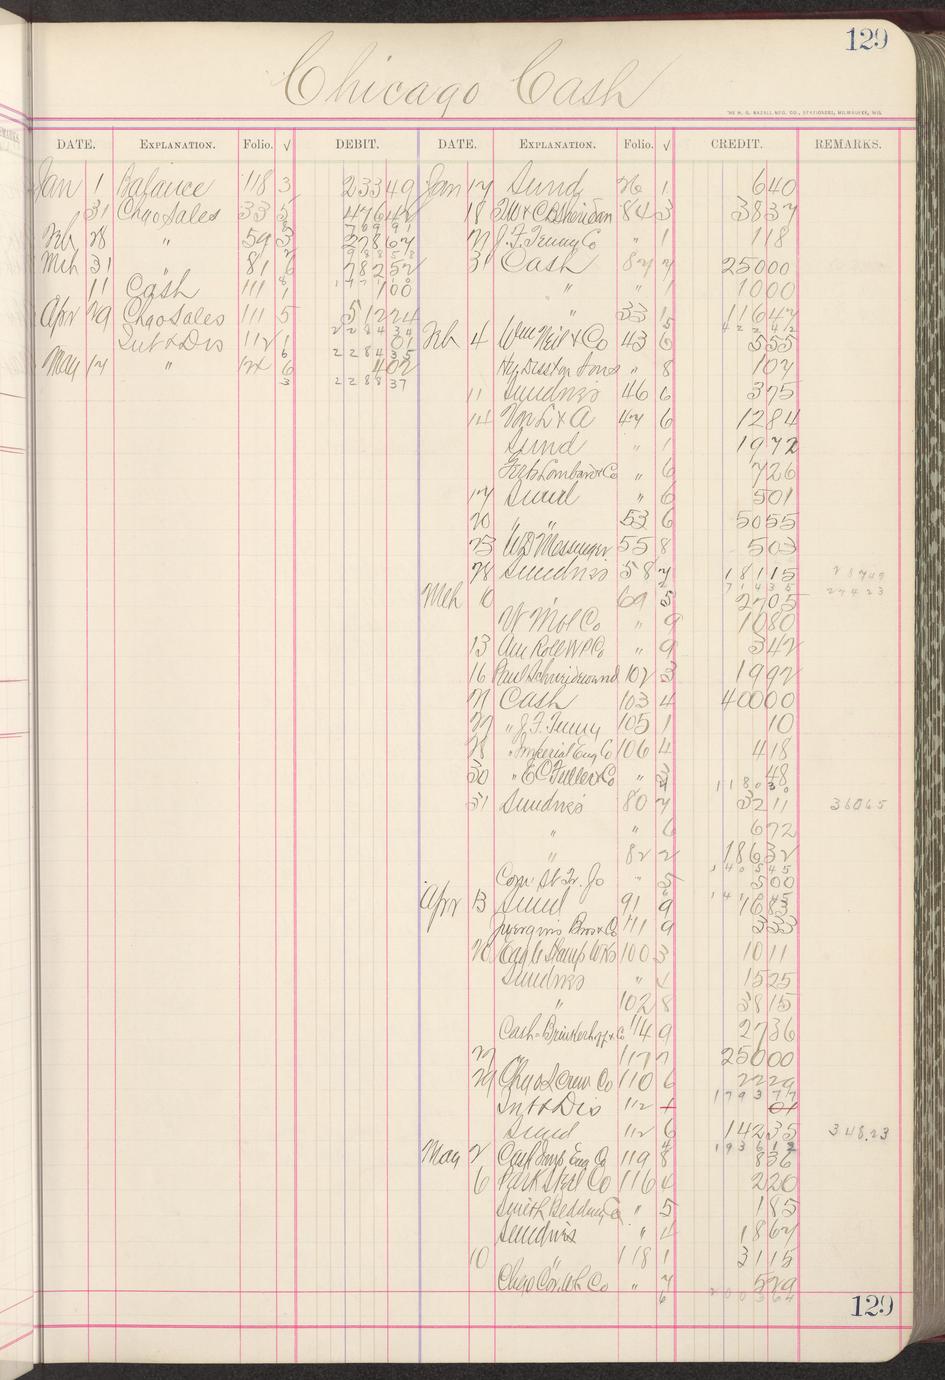 129
Chicago Cash
THE H. G. RAZALL MFG. CO., STATIONERS, MILWAUKEE, WIS.
DATE. EXPLANATION. Folio. √ DEBIT. DATE. EXPLANATION. Folio. √ CREDIT. REMARKS.
Jan 1 Balance 118 3 23349
31 Chgo Sales 33 5 47642
Feb 28 " 59 3 27867
Mch 31 " 81 6 78252
11 Cash 111 1 100
Apr 29 Chgo Sales 111 5 51224
Int & Dis 112 1 01
2 2 8 4 35
May 17 " 6 402
3 2 2 8 8 37
Jan 17 Sund 26 1 640
18 84 3 3837
21 J. F. Temny Co " 1 118
31 Cash 87 7 25000
" " 1 1000
" 33 1 11647
Feb 4 Wm Neil & Co 43 6 555
Hy Disston Sons " 8 107
11 Sundries 46 6 375
14 Von L & A 47 6 1284
Sund " 1 1972
Lombard & Co " 6 726
17 Sund " 6 501
20 " " 53 6 5055
23 WD Messinger 55 8 503
28 Sundries 58 7 18115
Mch 10 69 5 2705
27423
W Mol Co " 9 1080
13 Am Roll W P Co " 9 342
16 102 3 1992
21 Cash 103 4 40000
27 " J. F. Temny 105 1 10
28 " Imperial Eng Co 106 4 418
30 " E C Fuller & Co " 48
31 Sundries 80 7 3211 36065
" " 6 672
" 82 2 18632
" 5 500
Apr 13 Sund 91 9 1683
Juergins Bros & Co 111 9 333
20 Eagle Stamp Wks 100 3 1011
Sundries " 4 1525
" 102 8 3815
Cash - Brinkerhoff & Co 114 9 2736
27 117 7 25000
29 Chgo Screw Co 110 6 2229
1 7 9 3 77
Int & Dis 112 1 01
Sund 112 6 14235 348.23
May 2 Cash Imp Eng Co 119 8 836
6 Park Steel Co 116 4 220
Smith Bedding Co " 5 185
Sundries " 4 1867
10 " 118 1 3115
Chgo Co " 7 529
6 2 0 0 3 64
129